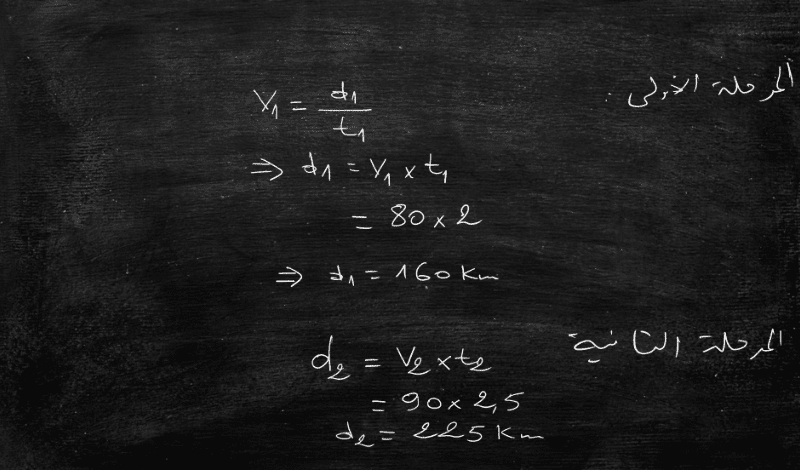 المرحلة الأولى :
V₁ = d₁ / t₁
⇒ d₁ = V₁ × t₁
= 80 × 2
⇒ d₁ = 160 Km
المرحلة الثانية
d₂ = V₂ × t₂
= 90 × 2,5
d₂ = 225 Km